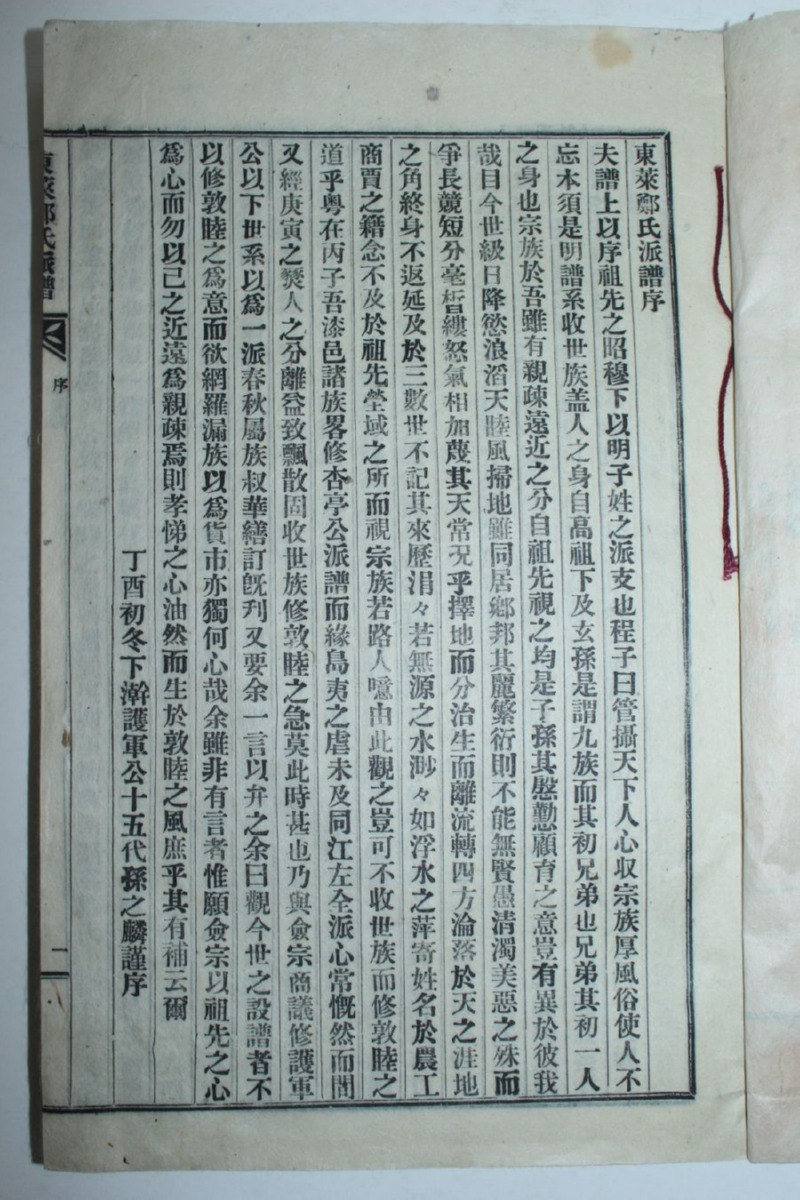 東萊鄭氏派譜序
夫譜上以序祖先之昭穆下以明子姓之派支也程子曰管攝天下人心収宗族厚風俗使人不
忘本須是明譜系收世族盖人之身自高祖下及玄孫是謂九族而其初兄弟也兄弟其初一人
之身也宗族於吾雖有親疎遠近之分自祖先視之均是子孫其慇懃顧育之意豈有異於彼我
哉目今世級日降慾浪滔天睦風掃地雖同居鄕邦其麗繁衍則不能無賢愚清濁美惡之殊而
爭長競短分毫析縷怒氣相加蔑其天常况乎擇地而分治生而離流轉四方淪落於天之涯地
之角終身不返延及於三數世不記其來歷涓々若無源之水渺々如浮水之萍寄姓名於農工
商賈之籍念不及於祖先塋域之所而視宗族若路人噫由此觀之豈可不收世族而修敦睦之
道乎粤在丙子吾漆邑諸族畧修杏亭公派譜而緣島夷之虐未及同江左全派心常慨然而間
又經庚寅之燹人之分離益致飄散固收世族修敦睦之急莫此時甚也乃與僉宗商議修護軍
公以下世系以爲一派春秋屬族叔華繕訂旣刋又要余一言以弁之余曰觀今世之設譜者不
以修敦睦之爲意而欲網羅漏族以爲貨市亦獨何心哉余雖非有言者惟願僉宗以祖先之心
爲心而勿以己之近遠爲親疎焉則孝悌之心油然而生於敦睦之風庶乎其有補云爾
丁酉初冬下澣護軍公十五代孫之麟謹序
東萊鄭氏派譜
序
一